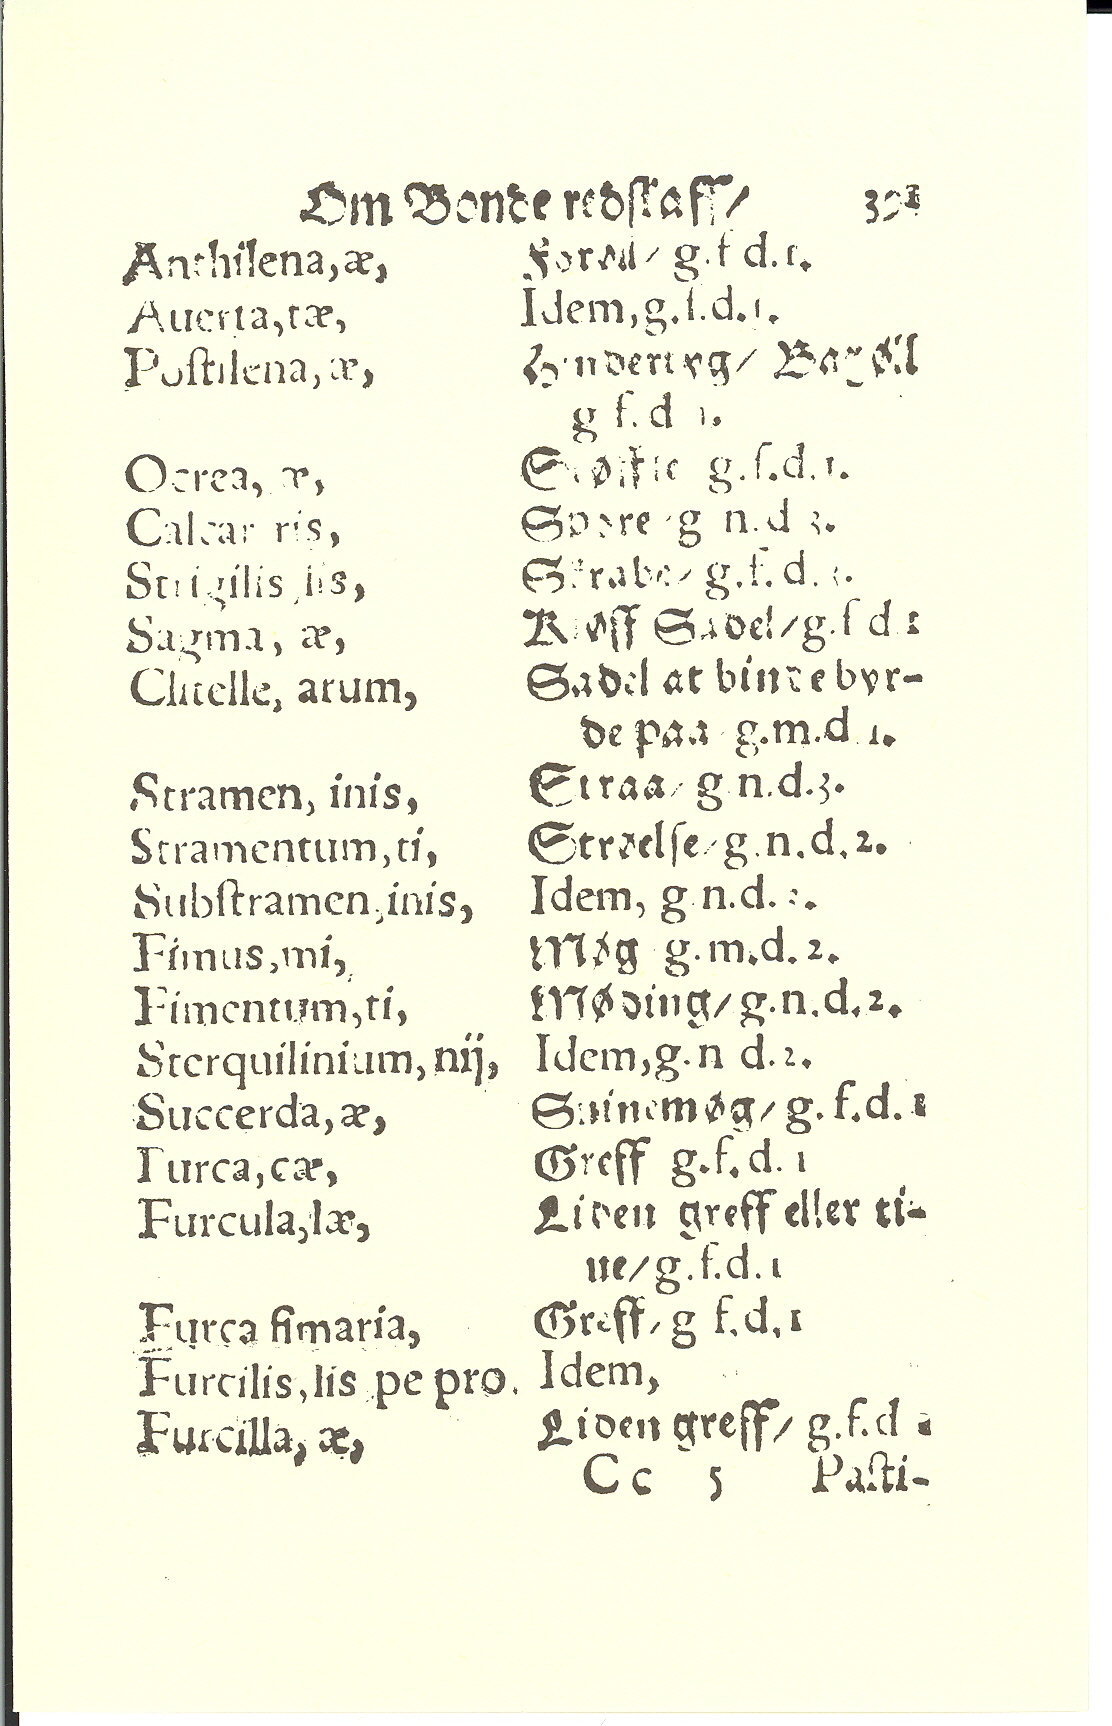 Om Bonde redskaff/
Anthilena, æ, g. f d. 1.
Auerta, tæ, Idem, g. f. d. 1.
Postilena, æ,
g f. d 1.
Ocrea, æ, g. f. d. 1.
Calcar ris, Spore g n. d 3.
Strigilis lis, Skrabe/ g. f. d. 3.
Sagma, æ, Kløff Sadel/ g. f d 1
Clitelle, arum, Sadel at binde byr-
de paa g. m. d 1.
Stramen, inis, Straa/ g n. d. 3.
Stramentum, ti, Strøelse/ g. n. d. 2.
Substramen, inis, Idem, g n. d. 3.
Fimus, mi, Møg g. m. d. 2.
Fimentum, ti, Møding/ g. n. d. 2.
Sterquilinium, nij, Idem, g. n d. 2.
Succerda, æ, Suinemøg/ g. f. d. 1
Furca, cæ, Greff g. f. d. 1
Furcula, læ, Liden greff eller ti-
ne/ g. f. d. 1
Furca fimaria, Greff/ g f. d. 1
Furcilis, lis pe pro. Idem,
Furcilla, æ, Liden greff/ g. f. d 1
Cc 5 Pasti-